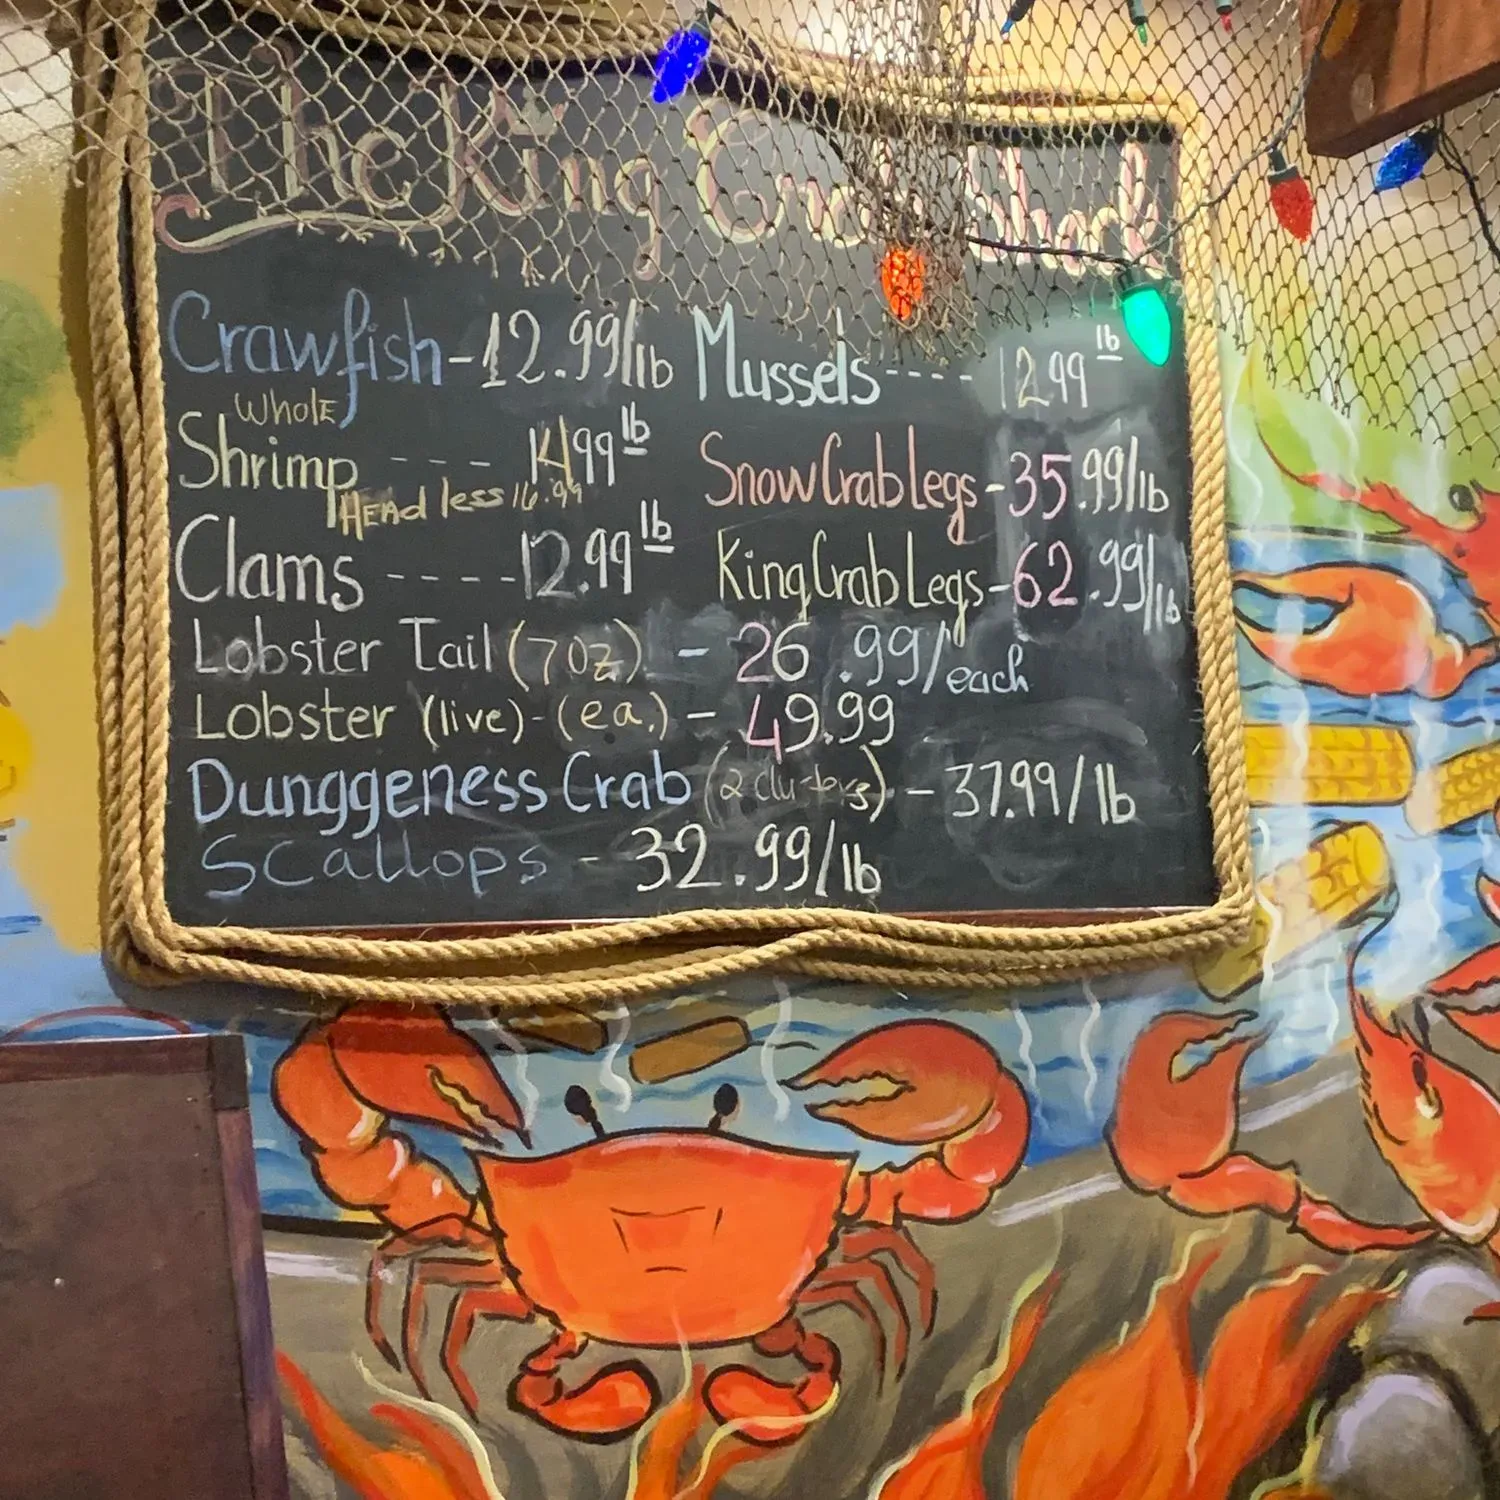 The King Crab Shack
Crawfish - 12.99/lb
Mussels ---- 12.99 lb
Whole
Shrimp --- 14.99 lb
Headless 16.99
Snow Crab Legs - 35.99/lb
Clams ---- 12.99 lb
King Crab Legs - 62.99/lb
Lobster Tail (7oz) - 26.99/each
Lobster (live) - (ea.) - 49.99
Dunggeness Crab (2 clusters) - 37.99/lb
Scallops - 32.99/lb